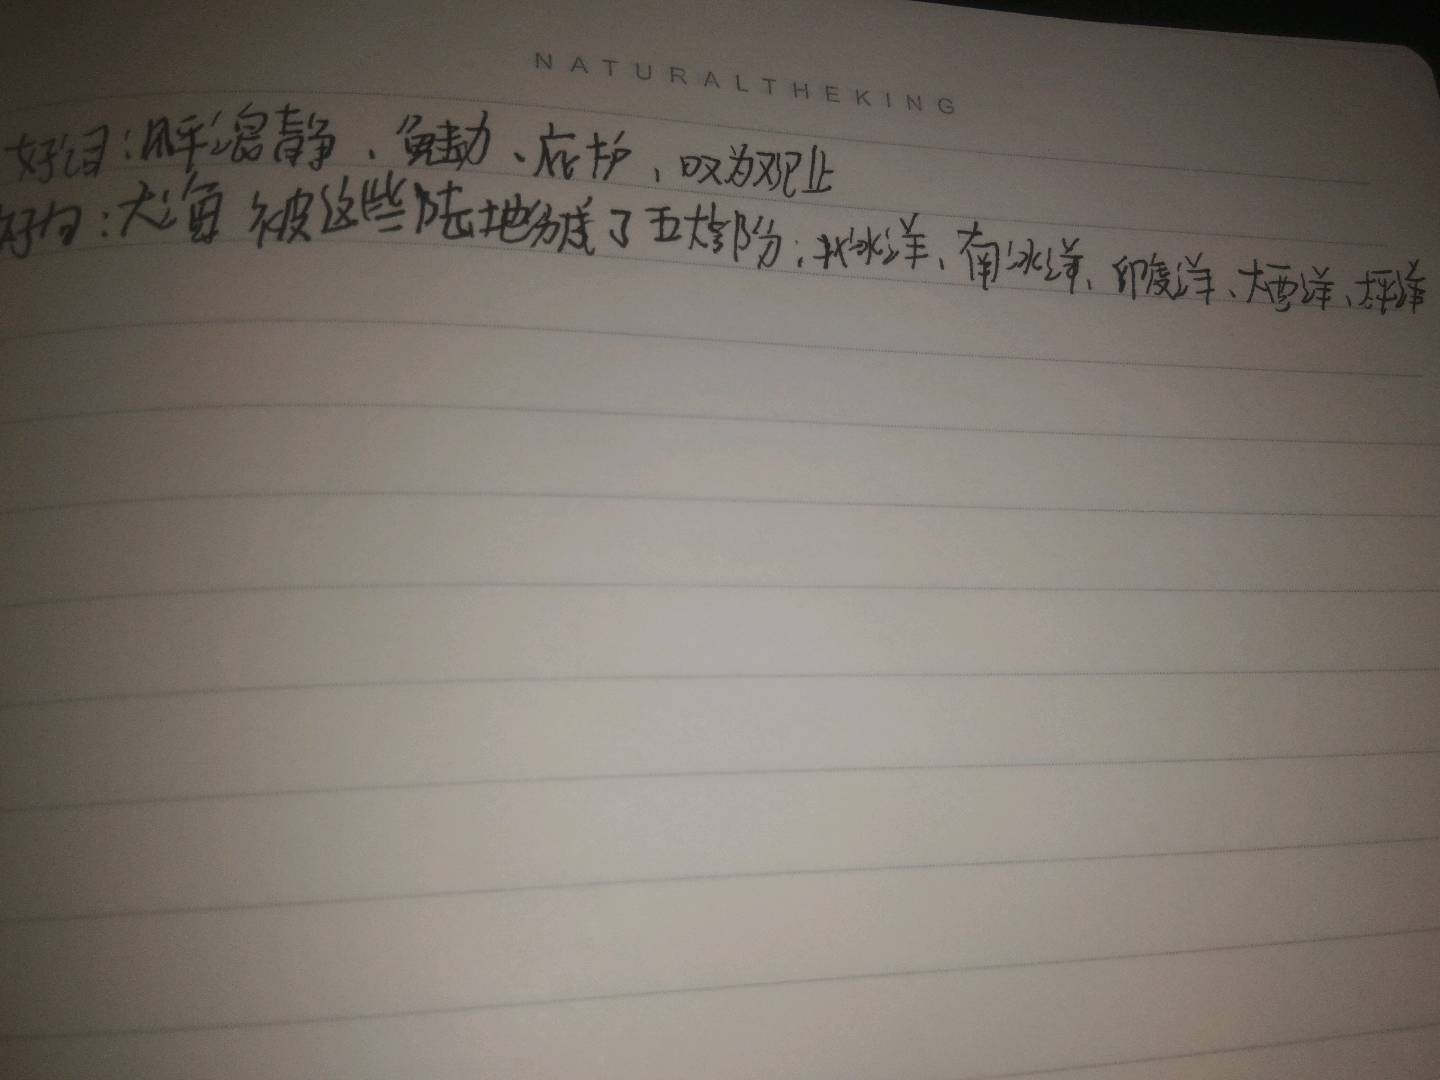 NATURALTHEKING
好词：静、触动、庇护、叹为观止
好句：大海被这些陆地分成了五大部份：北冰洋、南冰洋、印度洋、大西洋、太平洋